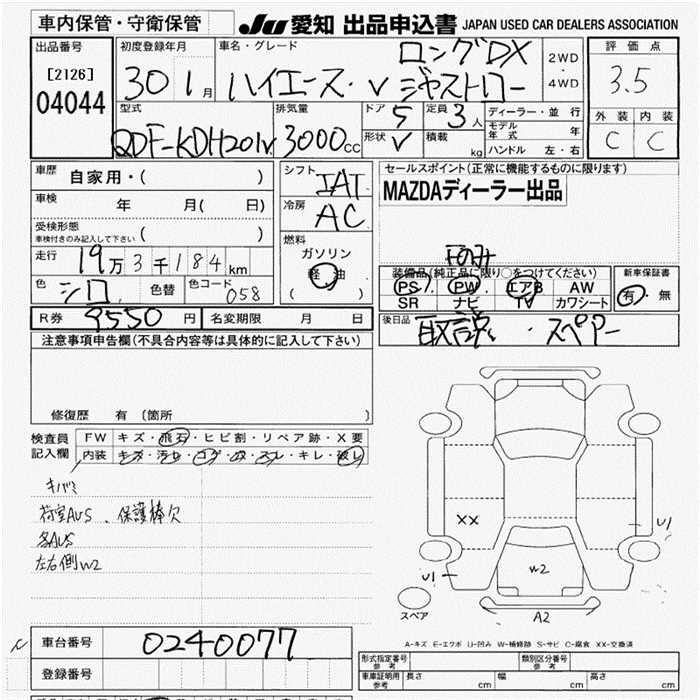 車内保管・守衛保管
JU 愛知 出品申込書 JAPAN USED CAR DEALERS ASSOCIATION
出品番号
[2126]
04044
初度登録年月
30 1月
車名・グレード
ロングDX
ハイエース・V ジャストロー
2WD・4WD
評価点
3.5
外装 内装
C C
型式
QDF-KDH201V
排気量
3000cc
ドア 5
形状 V
定員 3人
積載 kg
ディーラー・並行
モデル年式 年
ハンドル 左・右
車歴 自家用・( )
車検 年 月( 日)
受検形態
車検付きのみ記入して下さい ( )
走行 19万3千184km
色 シロ 色替 色コード 058
シフト IAT
冷房 AC
燃料
ガソリン
軽油
( )
セールスポイント(正常に機能するものに限ります)
MAZDAディーラー出品
装備品(純正品に限り○をつけてください)
PS PW エアB AW
SR ナビ TV カワシート
新車保証書
有・無
R券 9550円 名変期限 月 日
後日品 取説・スペアー
注意事項申告欄(不具合内容等は具体的に記入して下さい)
修復歴 有 (箇所 )
検査員記入欄
FW キズ・飛石・ヒビ割・リペア跡・X要
内装 キズ・汚レ・コゲ・穴・スレ・キレ・破レ
キバミ
荷室AUS、保護棒欠
各AUS
左右側W2
XX
U1
U1
W2
A2
スペア
A-キズ E-エクボ U-凹み W-補修跡 S-サビ C-腐食 XX-交換済
車台番号 0240077
登録番号
形式指定番号 参考
類別区分番号 参考
車庫証明用 参考 長さ cm 幅 cm 高さ cm